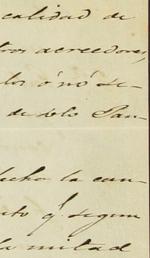 calidad de
tros acreedores,
los ó nó se-
de solo Pan-
echo la can-
nto q.e segun
la mitad